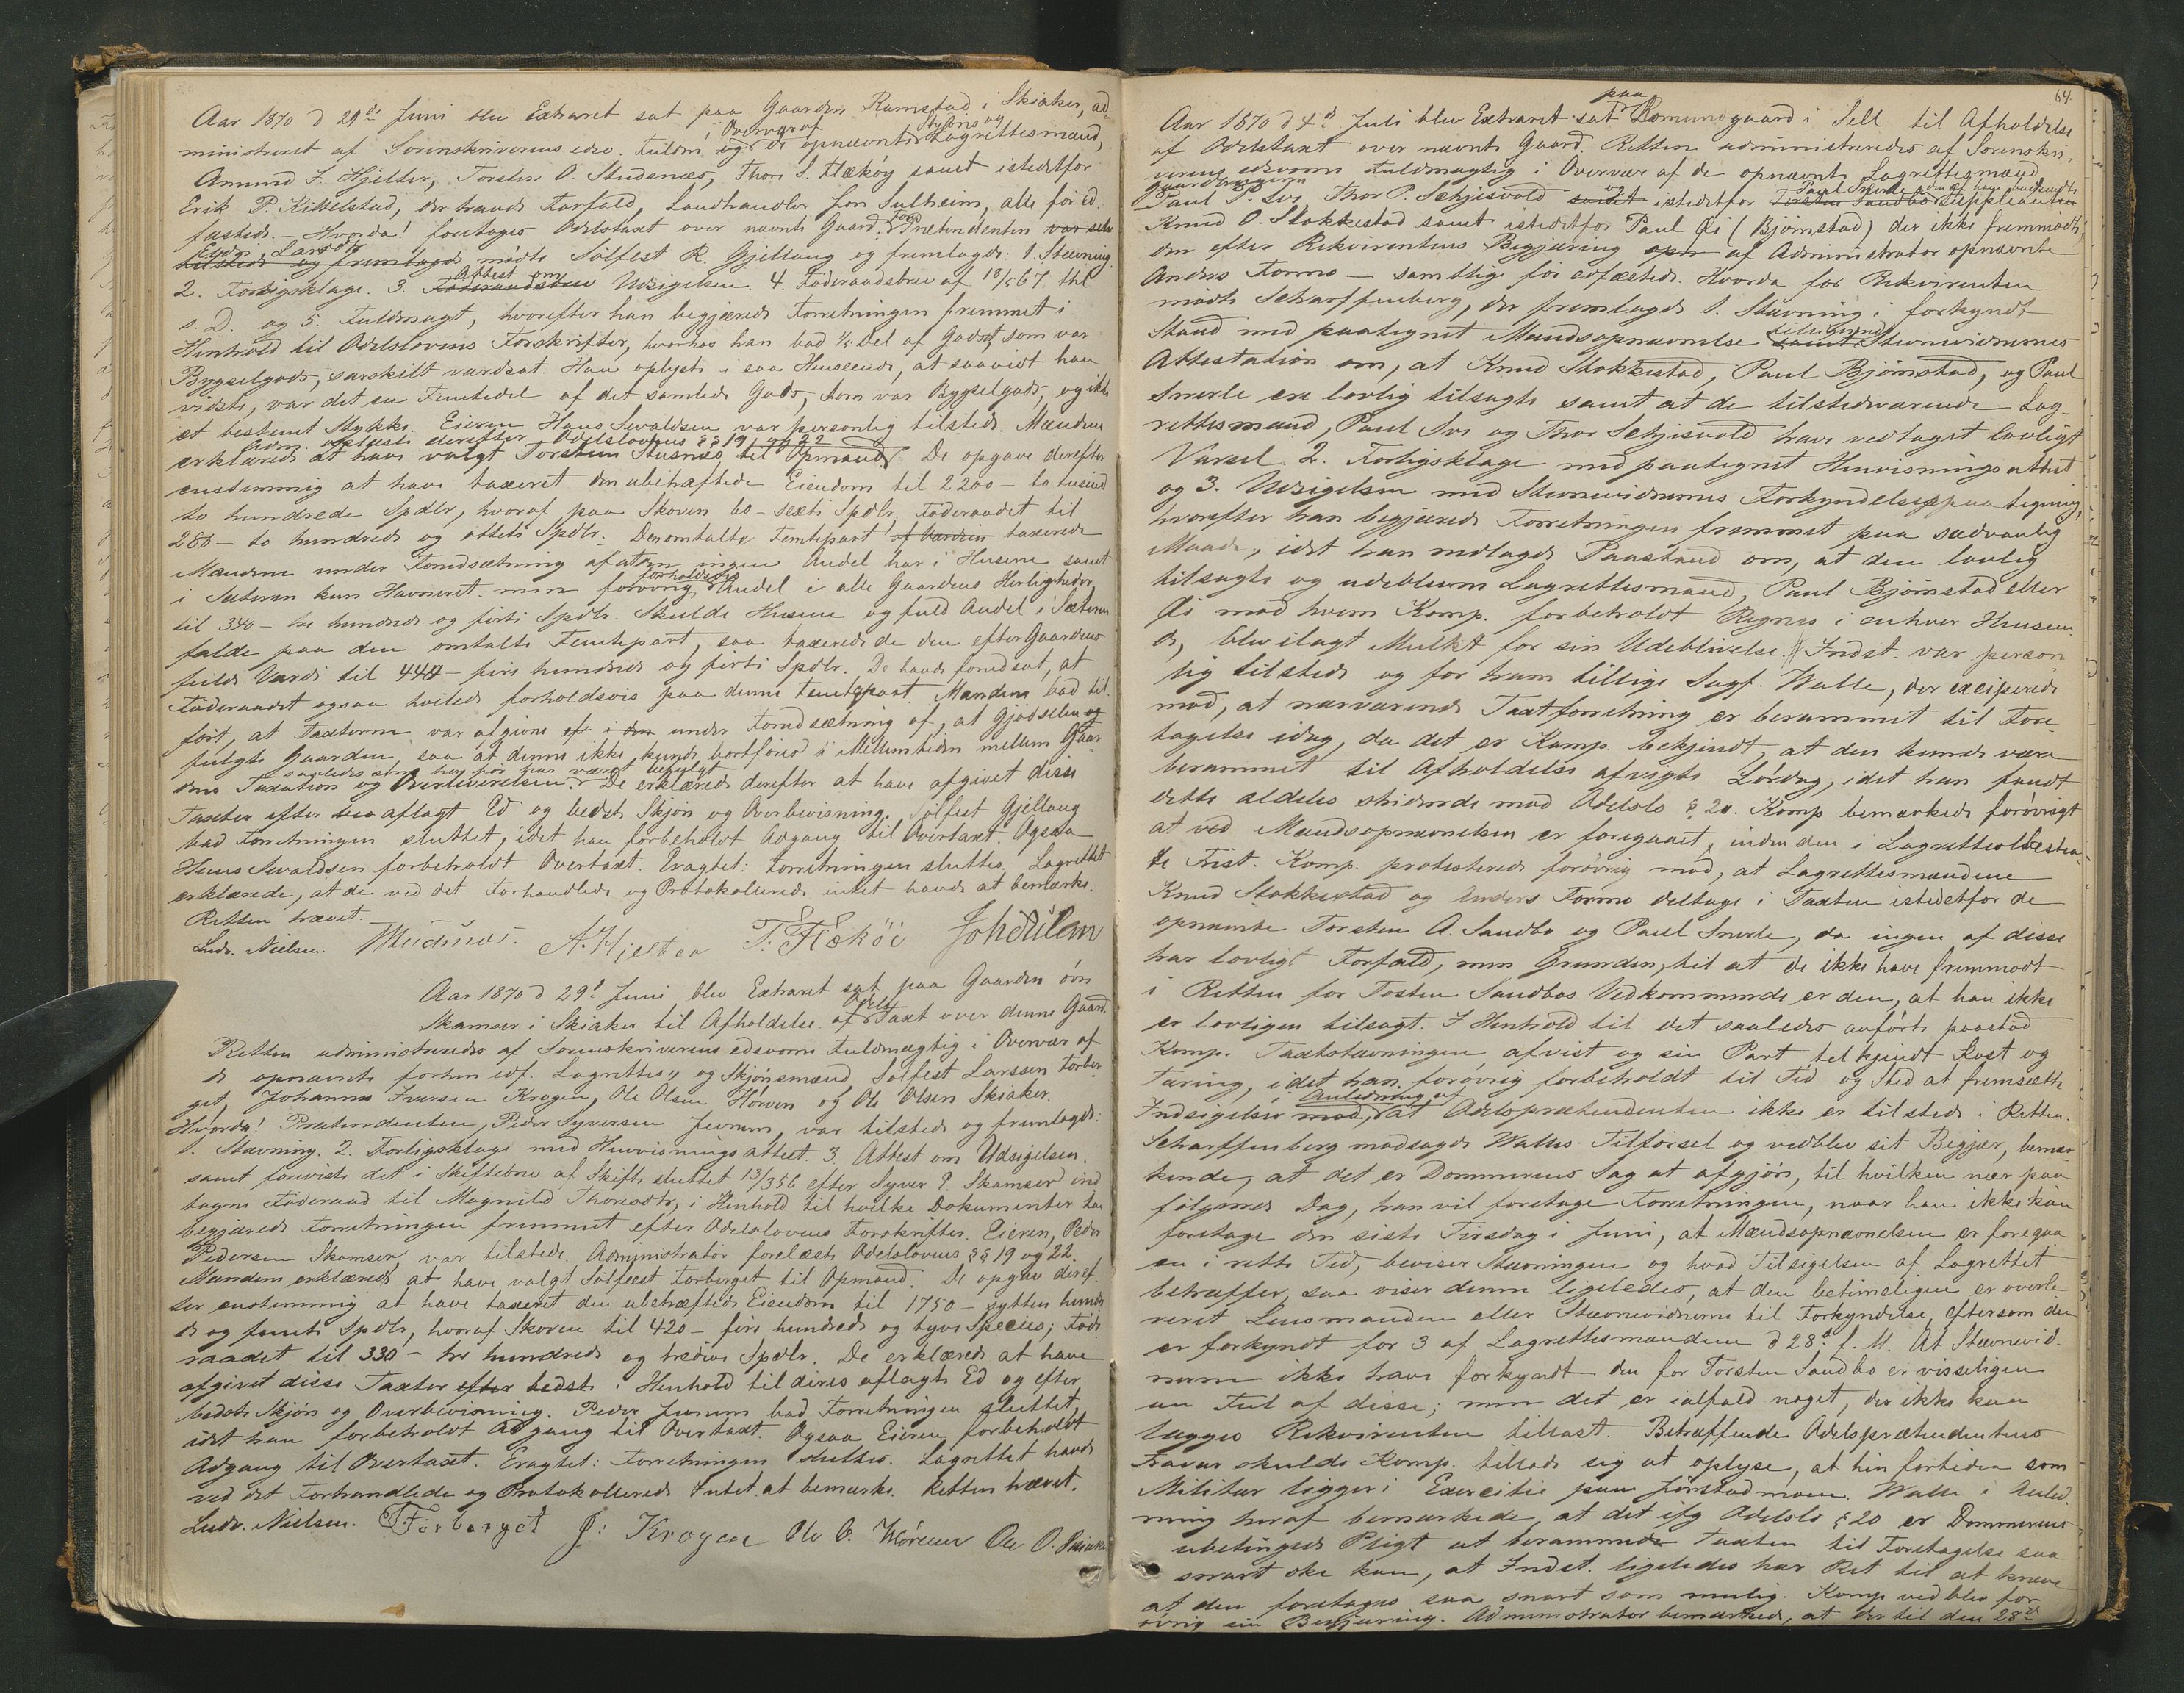 Aar 1870 d 29de Juni blev Extraret sat paa Gaarden Ramstad i Skiaker, ad-
ministreret af Sorenskriverens edsv. Fuldm. i Overvær af de opnævnte Lagrettesmænd,
Amund J. Hjelter, Torsten O. Stusnæs, Thor S. Flækøy samt istedetfor
Erik P. Kittelstad, der havde Forfald, Landhandler Jon Sulheim, alle før ed-
fæstede. – Hvorda! foretoges Odelstaxt over nævnte Gaard. For Prætendenten var selv
tilstede og fremlagde mødte Sølfest R. Gjeilaug og fremlagde: 1. Stævning.
2. Forligsklage. 3. Attest om Udsigelsen. 4. Føderaadsbrev af 18/5 67. thl
s. D. og 5. Fuldmagt, hvorefter han begjærede Forretningen fremmet i
Henhold til Odelslovens Forskrifter, hvorhos han bad 1/5 Del af Godset, som var
Bygselgods, særskilt værdsat. Han oplyste i saa Henseende, at saavidt han
vidste, var det en Femtedel af det samlede Gods, som var Bygselgods, og ikke
et bestemt Stykke. Eieren Hans Iwaldsen var personlig tilstede. Mændene
Adm. oplæste derefter Odelslovens §§ 19 og 22
erklærede at have valgt Torsten Stusnæs til Opmand. De opgave derefter
enstemmig at have taxeret den ubehæftede Eiendom til 2200 – to tusind
to hundrede Spdlr, hvoraf paa Skoven 60 – sexti Spdlr. Føderaadet til
280 – to hundrede og otteti Spdlr. Den omtalte Femtepart af Værdien taxerede
Mændene under Forudsætning af at den ingen Andel har i Husene samt
i Sæteren kun Havneret. men forøvrig forholdsvis Andel i alle Gaardens Herligheder,
til 340 – tre hundrede og firti Spdlr. Skulde Husene og fuld Andel i Sæteren
falde paa den omtalte Femtepart, saa taxerede de den efter Gaardens
fulde Værdi til 440 – fire hundrede og firti Spdlr. De havde forudsat, at
Føderaadet ogsaa hvilede forholdsvis paa denne Femtepart. Mændene bad til-
ført, at Taxterne var afgivne under Forudsætning af, at Gjødselen
fulgte Gaarden, saa at denne ikke kunde bortføres i Mellemtiden mellem Gaar-
saaledes som
dens Taxation og Overleverelsen. De erklærede derefter at have afgivet disse
Taxter efter aflagt Ed og bedste Skjøn og Overbevisning. Sølfest Gjeilaug
bad Forretningen sluttet, idet han forbeholdt Adgang til Overtaxt. Ogsaa
Hans Iwaldsen forbeholdt Overtaxt. Eragtet: Forretningen sluttes. Lagrettet
erklærede, at de ved det Forhandlede og Protokollerede intet havde at bemærke.
Retten hævet.
Ludv. Nielsen. TStudsnæs. A. Hjelter T. S. Flækøi JohSulem
Aar 1870 d 29d Juni blev Extraret sat paa Gaarden øvre
Skamser i Skiaker til Afholdelse af Odels Taxt over denne Gaard.
Retten administreredes af Sorenskriverens edsvorne Fuldmægtig i Overvær af
de opnævnte forhen edf. Lagrettes- og Skjønsmænd, Sølfest Larssen Forber-
get, Johannes Iversen Krogen, Ole Olsen Hørven og Ole Olsen Skiaker.
Hvorda! Prætendenten, Peder Syversen, var tilstede og fremlagde:
1. Stævning. 2. Forligsklage med Henvisningsattest. 3. Attest om Udsigelsen.
samt foreviste det i Skiftebrev af Skifte sluttet 13/3 56 efter Syver P. Skamser ind-
tagne Føderaad til Magnild Thoresdtr, i Henhold til hvilke Dokumenter han
begjærede Forretningen fremmet efter Odelslovens Forskrifter. Eieren, Peder
Pedersen Skamser, var tilstede. Administrator forelæste Odelslovens §§ 19 og 22.
Mændene erklærede at have valgt Sølfest Forberget til Opmand. De opgave deref-
ter enstemmig at have taxeret den ubehæftede Eiendom til 1750 – sytten hundre-
de og femti Spdlr, hvoraf Skoven til 420 – fire hundrede og tyve Species; Føde-
raadet til 330 – tre hundrede og tredive Spdlr. De erklærede at have
afgivet disse Taxter efter bedste i Henhold til deres aflagte Ed og efter
bedste Skjøn og Overbevisning. Peder bad Forretningen sluttet,
idet han forbeholdt Adgang til Overtaxt. Ogsaa Eieren forbeholdt
Adgang til Overtaxt. Eragtet: Forretningen sluttes. Lagrettet havde
ved det Forhandlede og Protokollerede Intet at bemærke. Retten hævet.
Ludv. Nielsen. SForberget J: Krogen Ole O. Hørven Ole O. Skiaker
64.
Aar 1870 d 4d Juli blev Extraret sat paa Romundgaard i Sell til Afholdelse
af Odelstaxt over nævnte Gaard. Retten administreredes af Sorenskri-
verens edsvorne Fuldmægtig i Overvær af de opnævnte Lagrettesmænd
Gaardbrugerne
Paul P. Svs, Thor P. Sehjesvold samt istedetfor Torsten Sandbo Paul Snerle Suppleanten
Knud O. Stokkestad samt istedetfor Paul Øi (Bjørnstad) der ikke fremmødte,
den efter Rekvirentens Begjæring af Administrator opnævnte
Anders Formo – samtlige før edfæstede. Hvorda for Rekvirenten
mødte Scharffenberg, der fremlagde 1. Stævning i forkyndt
Stand med paategnet Mandsopnævnelse samt tilligemed Stevnevidnernes
Attestation om, at Knud Stokkestad, Paul Bjørnstad, og Paul
Snerle ere lovlig tilsagte samt at de tilstedeværende Lag-
rettesmænd, Paul Svs og Thor Sehjesvold have vedtaget lovligt
Varsel. 2. Forligsklage med paategnet Henvisningsattest
og 3. Udsigelsen med Stevnevidnernes Forkyndelsespaategning,
hvorefter han begjærede Forretningen fremmet paa sædvanlig
Maade, idet han nedlagde Paastand om, at den lovlig
tilsagte og udeblevne Lagrettesmand, Paul Bjørnstad eller
Øi mod hvem Komp. forbeholdt Regres i enhver Henseen-
de, blev ilagt Mulkt for sin Udeblivelse. Indst. var person-
lig tilstede og for ham tillige Sagf. Walle, der exciperede
mod, at nærværende Taxtforretning er berammet til Fore-
tagelse idag, da det er Komp. bekjendt, at den kunde være
berammet til Afholdelse afvigte Lørdag, idet han fandt
dette aldeles stridende mod Odelslo § 20. Komp bemærkede forøvrigt
at ved Mandsopnævnelsen er foregaaet, inden den i Lagretteslbestem-
te Frist. Komp. protesterede forøvrig mod, at Lagrettesmændene
Knud Stokkestad og Anders Formo deltage i Taxten istedetfor de
opnævnte Torsten A. Sandbo og Paul Snerle, da ingen af disse
har lovligt Forfald, men Grunden, til at de ikke have fremmødt
i Retten for Tosten Sandbos Vedkommende er den, at han ikke
er lovligen tilsagt. I Henhold til det saaledes anførte paastod
Komp. Taxtstevningen afvist og sin Part tilkjendt Kost og
Tæring, idet han forøvrig forbeholdt til Tid og Sted at fremsætte
Indsigelser i Anledning af at Odelsprætendenten ikke er tilstede i Retten.
Scharffenberg modsagde Walles Tilførsel og vedblev sit Begjær, bemær-
kende, at det er Dommerens Sag at afgjøre, til hvilken nær paa-
følgende Dag, han vil foretage Forretningen, naar han ikke kan
foretage den sidste Tirsdag i Juni, at Mændsopnævnelsen er foregaa-
en i rette Tid, beviser Stævningen og hvad Tilsigelsen af Lagrettet
betræffer, saa viser denne ligeledes, at den betimeligen er overle-
veret Lensmanden eller Stævnevidnerne til Forkyndelse, eftersom den
er forkyndt for 3 af Lagrettesmændene d 28d f. M. At Stævnevid-
nerne ikke have forkyndt den for Torsten Sandbo er visseligen
en Feil af disse; men det er ialfald noget, der ikke kan
lægges Rekvirenten tillast. Betræffende Odelsprætendentens
Fravær skulde Komp. tillade sig at oplyse, at hin fortiden som
Militær ligger i Exercitie paa Jørstadmoen. Walle i Anled-
ning heraf bemærkede, at det ifg Odelslo § 20 er Dommerens
ubetingede Pligt at beramme Taxten til Foretagelse saa
snart ske kan, at Indst. ligeledes har Ret til at kræve
at den foretages saa snart som mulig. Komp vedblev for-
øvrig sin Begjæring. Administrator bemærkede, at der til den 28de